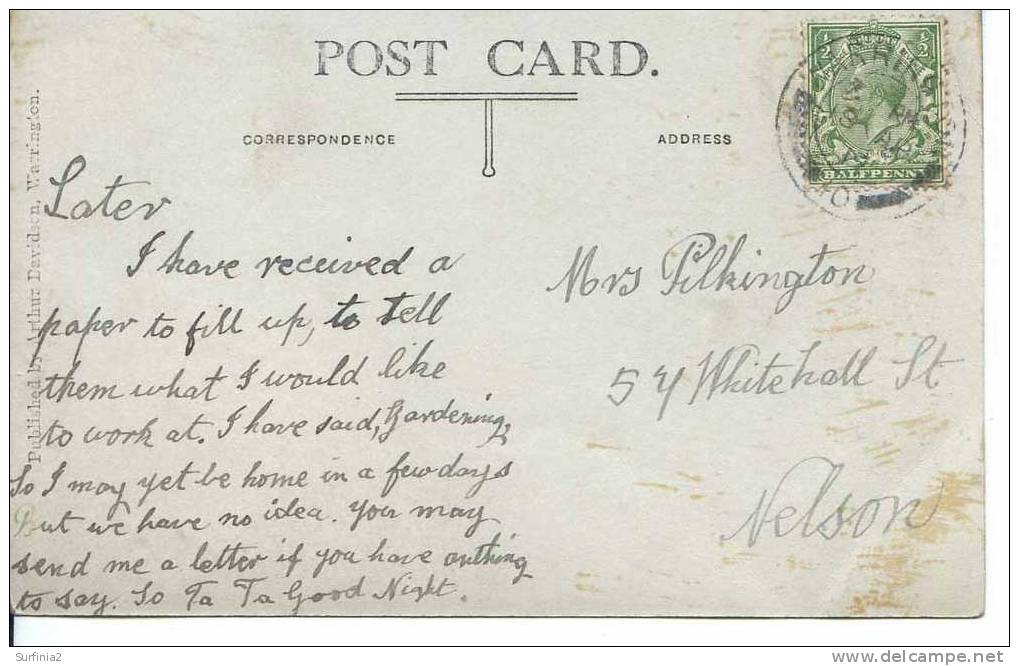 POST CARD.
CORRESPONDENCE
ADDRESS
HALFPENNY
Published by Arthur Davidson, Warrington.
Later
I have received a
paper to fill up, to tell
them what I would like
to work at. I have said, Gardening,
So I may yet be home in a few days
But we have no idea. You may
send me a letter if you have onthing
to say. So Ta Ta Good Night.
Mrs Pilkington
54 Whitehall St
Nelson
Surfinia2
www.delcampe.net